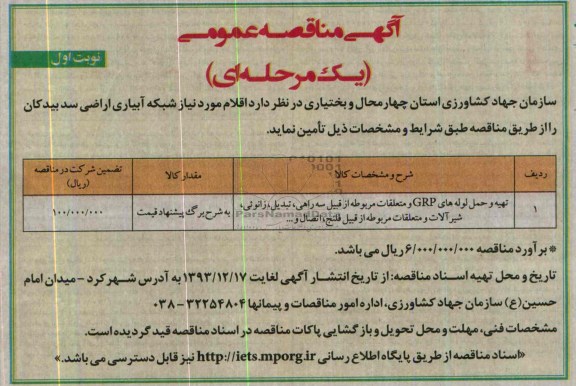 آگهی مناقصه عمومی
نوبت اول
(یک مرحله‌ای)
سازمان جهاد کشاورزی استان چهارمحال و بختیاری در نظر دارد اقلام مورد نیاز شبکه آبیاری اراضی سد بیدکان
را از طریق مناقصه طبق شرایط و مشخصات ذیل تأمین نماید.
ردیف شرح و مشخصات کالا مقدار کالا تضمین شرکت در مناقصه (ریال)
۱ تهیه و حمل لوله های GRP و متعلقات مربوطه از قبیل سه راهی، تبدیل، زانوئی،
شیرآلات و متعلقات مربوطه از قبیل فلنج، اتصال و... به شرح برگ پیشنهاد قیمت ۱۰۰/۰۰۰/۰۰۰
ParsNamadData
* برآورد مناقصه ۶/۰۰۰/۰۰۰/۰۰۰ ریال می باشد.
تاریخ و محل تهیه اسناد مناقصه: از تاریخ انتشار آگهی لغایت ۱۳۹۳/۱۲/۱۷ به آدرس شهرکرد - میدان امام
حسین(ع) سازمان جهاد کشاورزی، اداره امور مناقصات و پیمانها ۳۲۲۵۴۸۰۴ - ۰۳۸
مشخصات فنی، مهلت و محل تحویل و بازگشایی پاکات مناقصه در اسناد مناقصه قید گردیده است.
«اسناد مناقصه از طریق پایگاه اطلاع رسانی http://iets.mporg.ir نیز قابل دسترسی می باشد.»